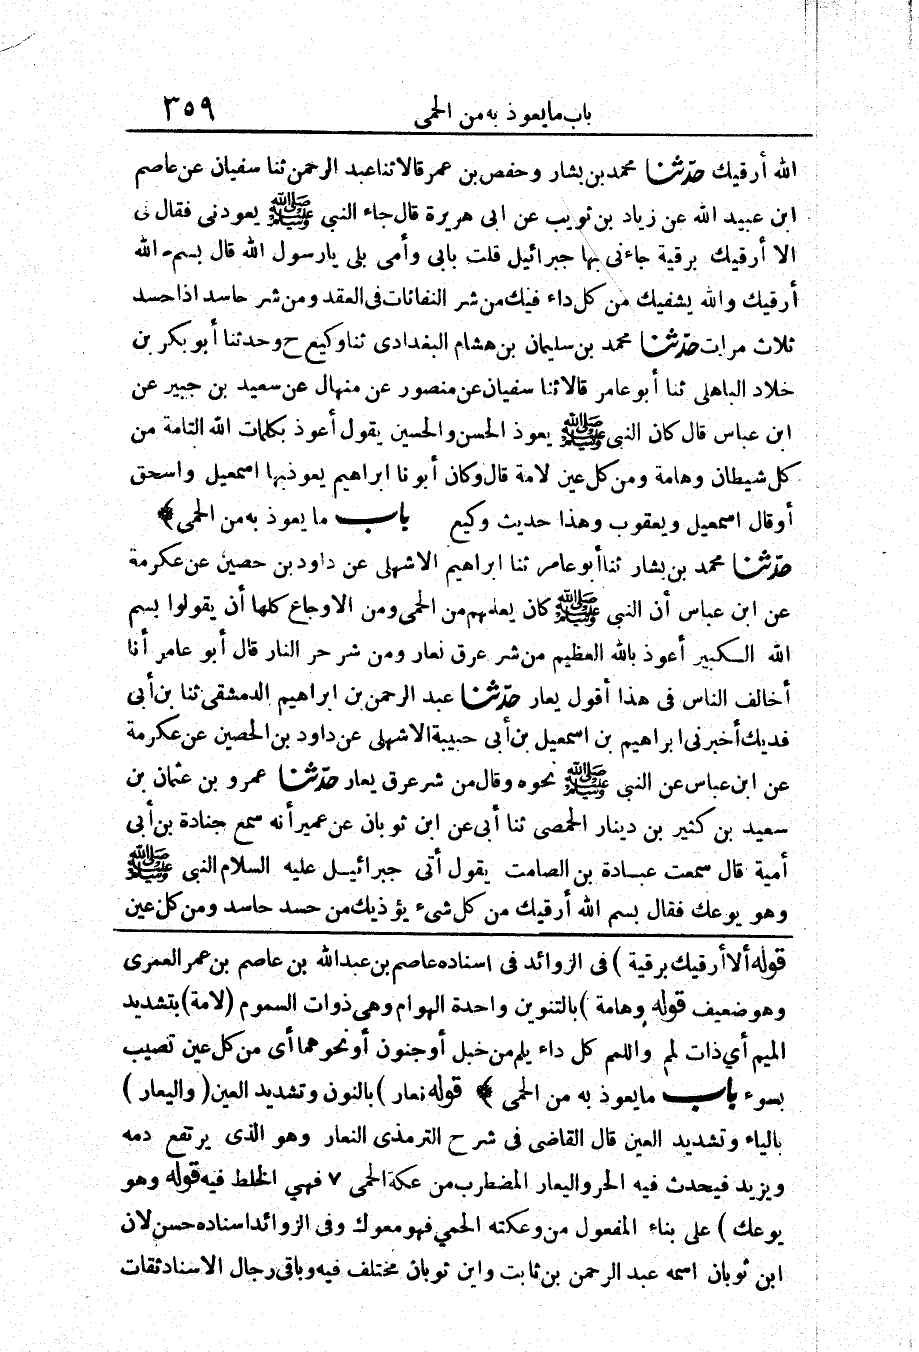 باب ما يعوذ به من الحمى ٣٥٩
الله أرقيك حدّثنا محمد بن بشار وحفص بن عمر قالا ثنا عبد الرحمن ثنا سفيان عن عاصم
ابن عبيد الله عن زياد بن ثويب عن ابى هريرة قال جاء النبي ﷺ يعودنى فقال لى
الا أرقيك برقية جاءنى بها جبرائيل قلت بابى وأمى بلى يارسول الله قال بسم الله
أرقيك والله يشفيك من كل داء فيك من شر النفاثات فى العقد ومن شر حاسد اذا حسد
ثلاث مرات حدّثنا محمد بن سليمان بن هشام البغدادى ثنا وكيع ح وحدثنا أبو بكر بن
خلاد الباهلى ثنا أبو عامر قالا ثنا سفيان عن منصور عن منهال عن سعيد بن جبير عن
ابن عباس قال كان النبى ﷺ يعوذ الحسن والحسين يقول أعوذ بكلمات الله التامة من
كل شيطان وهامة ومن كل عين لامة قال وكان أبونا ابراهيم يعوذ بها اسمعيل واسحق
أوقال اسمعيل ويعقوب وهذا حديث وكيع باب ما يعوذ به من الحمى ﴾
حدّثنا محمد بن بشار ثنا أبو عامر ثنا ابراهيم الاشهلى عن داود بن حصين عن عكرمة
عن ابن عباس أن النبى ﷺ كان يعلمهم من الحمى ومن الاوجاع كلها أن يقولوا بسم
الله الكبير أعوذ بالله العظيم من شر عرق نعار ومن شر حر النار قال أبو عامر أنا
أخالف الناس فى هذا أقول يعار حدّثنا عبد الرحمن بن ابراهيم الدمشقى ثنا بن أبى
فديك أخبرنى ابراهيم بن اسمعيل بن أبى حبيبة الاشهلى عن داود بن الحصين عن عكرمة
عن ابن عباس عن النبى ﷺ نحوه وقال من شر عرق يعار حدّثنا عمرو بن عثمان بن
سعيد بن كثير بن دينار الحمصى ثنا أبى عن ابن ثوبان عن عمير أنه سمع جنادة بن أبى
أمية قال سمعت عبادة بن الصامت يقول أتى جبرائيل عليه السلام النبى ﷺ
وهو يوعك فقال بسم الله أرقيك من كل شىء يؤذيك من حسد حاسد ومن كل عين
قوله ألا أرقيك برقية ) فى الزوائد فى اسناده عاصم بن عبدالله بن عاصم بن عمر العمرى
وهو ضعيف قوله وهامة ) بالتنوين واحدة الهوام وهى ذوات السموم (لامة) بتشديد
الميم أي ذات لمم واللمم كل داء يلم من خبل أو جنون أو نحوهما أى من كل عين تصيب
بسوء باب ما يعوذ به من الحمى ﴾ قوله نعار ) بالنون وتشديد العين ( واليعار )
بالياء وتشديد العين قال القاضى فى شرح الترمذى النعار وهو الذى يرتفع دمه
ويزيد فيحدث فيه الحر واليعار المضطرب من عكة الحمى ٧ فهي الخلط فيه قوله وهو
يوعك ) على بناء المفعول من وعكته الحمي فهو موعوك وفى الزوائد اسناده حسن لان
ابن ثوبان اسمه عبد الرحمن بن ثابت وابن ثوبان مختلف فيه وباقى رجال الاسناد ثقات